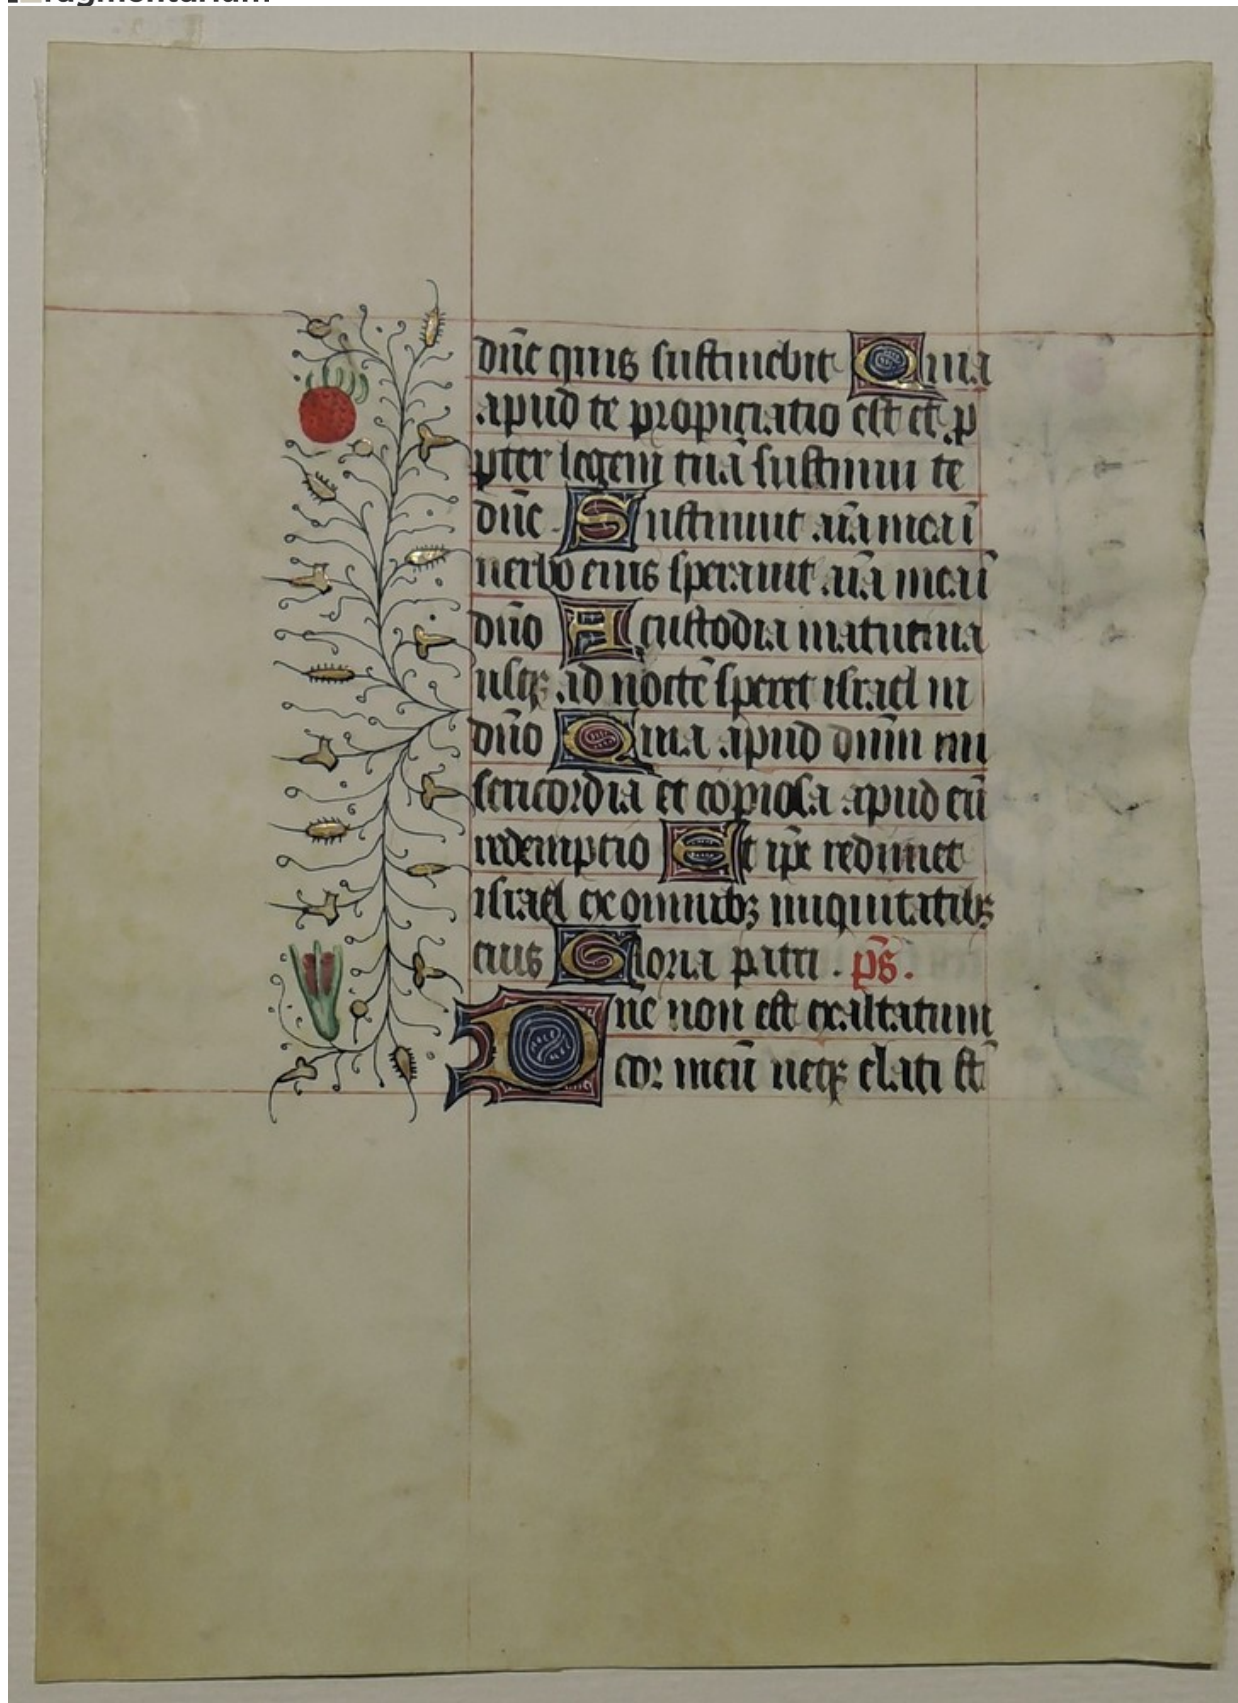 ragmentarium
dñe quis sustinebit Quia
apud te propiciatio est et p
pter legem tuã sustinui te
dñe . Sustinuit aĩa mea ĩ
verbo eius speravit aĩa mea ĩ
dño A custodia matutina
usq; ad noctẽ speret israel in
dño Quia apud dnm mi
sericordia et copiosa apud eũ
redemptio Et ip̃e redimet
israel ex omnibꝫ iniquitatibꝫ
eius Gloria patri . p̃s .
Dne non est exaltatum
cor meũ neq; elati st̃